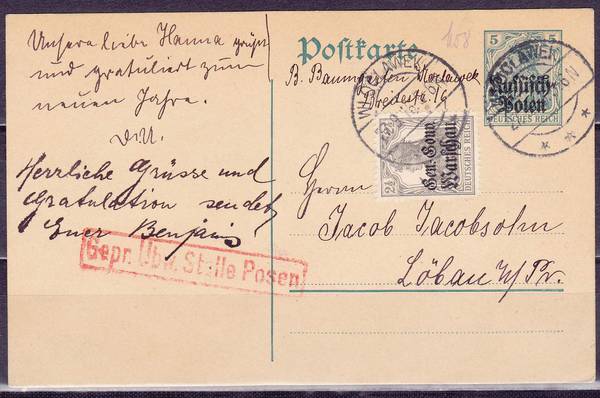 Unsere liebe Hanna grüßt
und gratuliert zum
neuen Jahre.
D.U.
Herrliche Grüsse und
Gratulation sendet
Euer Benjamin
Gepr. Übw. Stelle Posen
Postkarte
108
B. Baumgarten Wloclawek
Breitestr. 16
WLOCLAWEK
5
Russisch-
Polen
DEUTSCHES REICH
WLOCLAWEK
2½
Gen.-Gouv.
Warschau
DEUTSCHES REICH
Herrn
Jacob Jacobsohn
Löbau W/Pr.